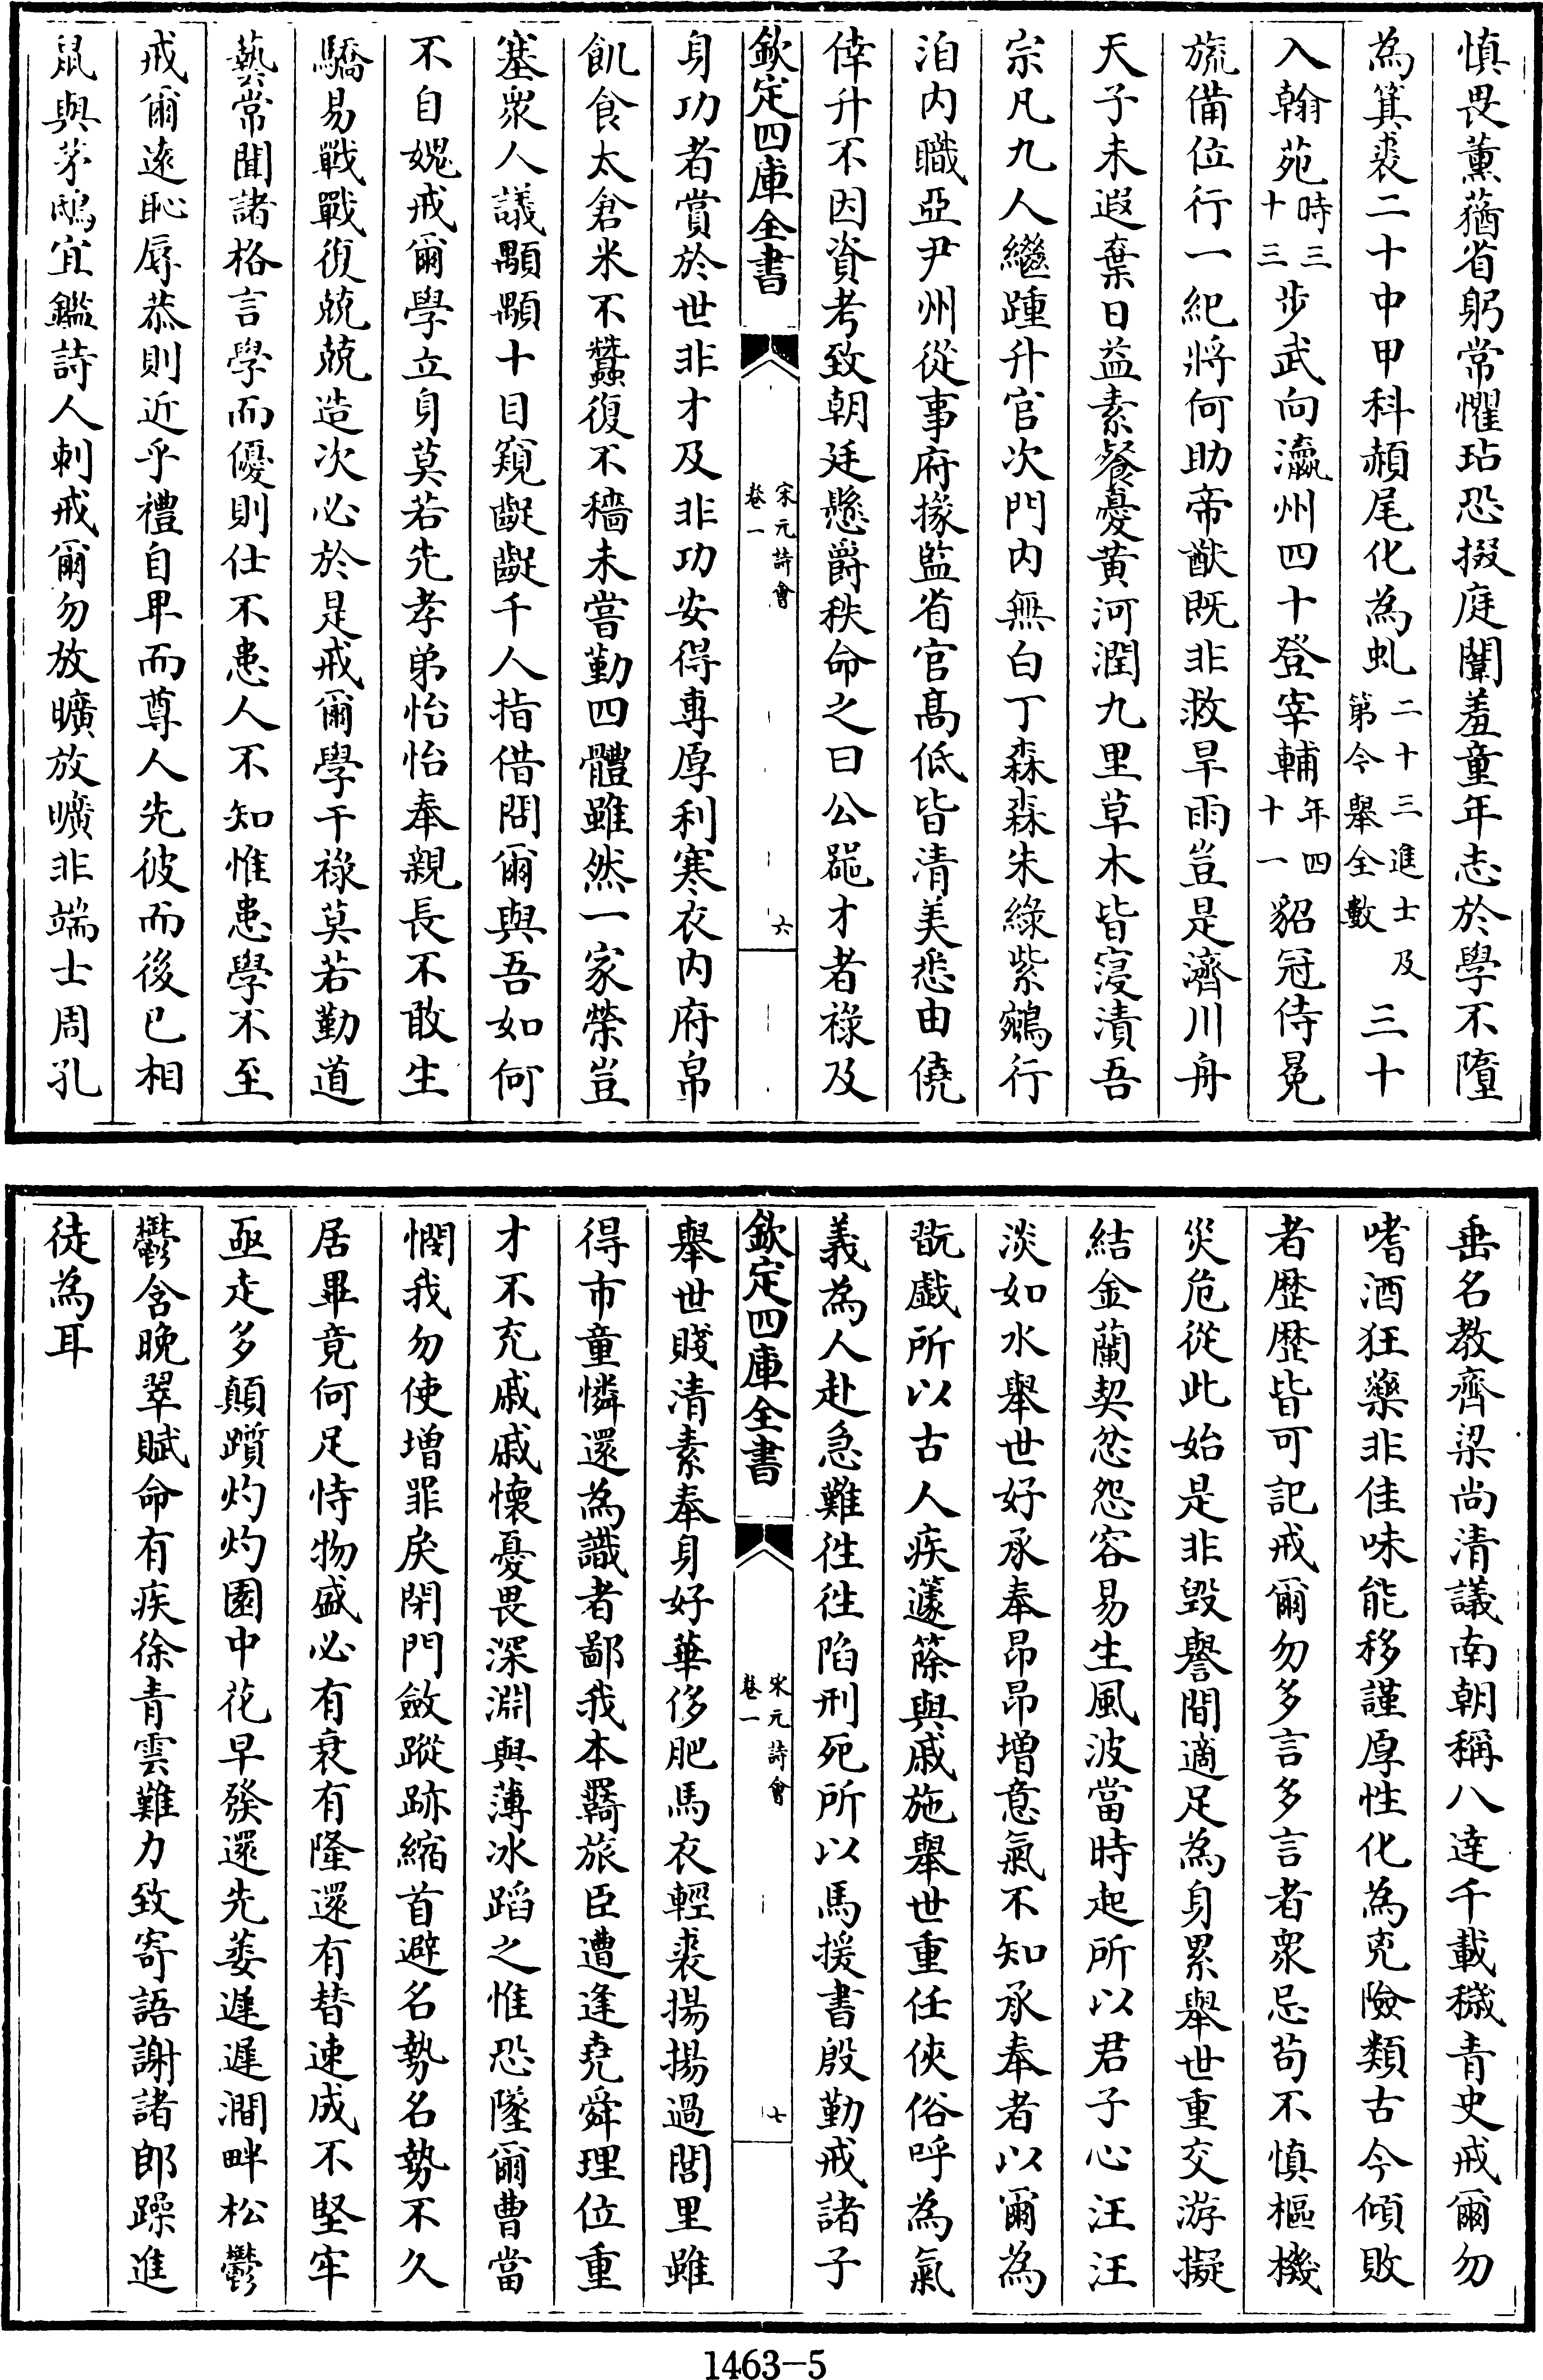 慎畏薰蕕省躬常懼玷恐掇庭闈羞童年志於學不隳
為箕裘二十中甲科赬尾化為虬二十三進士及第今舉全數三十
入翰苑時三十三步武向瀛州四十登宰輔年四十一貂冠侍冕
旒備位行一紀將何助帝猷既非救旱雨豈是濟川舟
天子未遐棄日益素餐憂黄河潤九里草木皆寖漬吾
宗凡九人繼踵升官次門内無白丁森森朱綠紫鵷行
洎内職亞尹州從事府掾監省官高低皆清美悉由僥
倖升不因資考致朝廷懸爵秩命之曰公器才者祿及
欽定四庫全書
宋元詩會
卷一
六
身功者賞於世非才及非功安得專厚利寒衣内府帛
飢食太倉米不蠶復不穡未嘗勤四體雖然一家榮豈
塞衆人議顒顒十目窺齪齪千人指借問爾與吾如何
不自媿戒爾學立身莫若先孝弟怡怡奉親長不敢生
驕易戰戰復兢兢造次必於是戒爾學干祿莫若勤道
藝常聞諸格言學而優則仕不患人不知惟患學不至
戒爾遠恥辱恭則近乎禮自卑而尊人先彼而後已相
鼠與茅鴟宜鑑詩人刺戒爾勿放曠放曠非端士周孔
垂名教齊梁尚清議南朝稱八達千載穢青史戒爾勿
嗜酒狂藥非佳味能移謹厚性化為兇險類古今傾敗
者歴歴皆可記戒爾勿多言多言者衆忌苟不慎樞機
災危從此始是非毁譽間適足為身累舉世重交游擬
結金蘭契忿怨容易生風波當時起所以君子心汪汪
淡如水舉世好承奉昂昂增意氣不知承奉者以爾為
翫戯所以古人疾籧篨與戚施舉世重任俠俗呼為氣
義為人赴急難往往陷刑死所以馬援書殷勤戒諸子
欽定四庫全書
宋元詩會
卷一
七
舉世賤清素奉身好華侈肥馬衣輕裘揚揚過閭里雖
得市童憐還為識者鄙我本羇旅臣遭逢堯舜理位重
才不充戚戚懷憂畏深淵與薄冰蹈之惟恐墜爾曹當
憫我勿使增罪戾閉門斂蹤跡縮首避名勢名勢不久
居畢竟何足恃物盛必有衰有隆還有替速成不堅牢
亟走多顛躓灼灼園中花早發還先萎遲遲澗畔松鬱
鬱含晚翠賦命有疾徐青雲難力致寄語謝諸郎躁進
徒為耳
1463-5